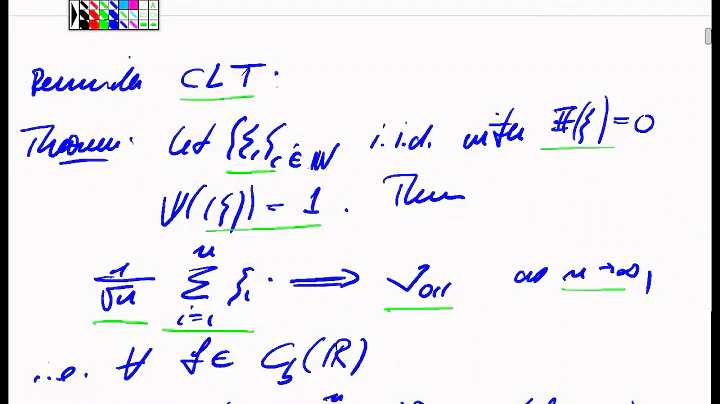 Reminder CLT.
Theorem. Let {ξ_i}_{i∈ℕ} i.i.d. with E(ξ)=0
V(ξ) = 1. Then
1/√n ∑_{i=1}^{n} ξ_i ⟹ ν_{0,1} as n→∞,
i.e. ∀ f ∈ C_b(ℝ)